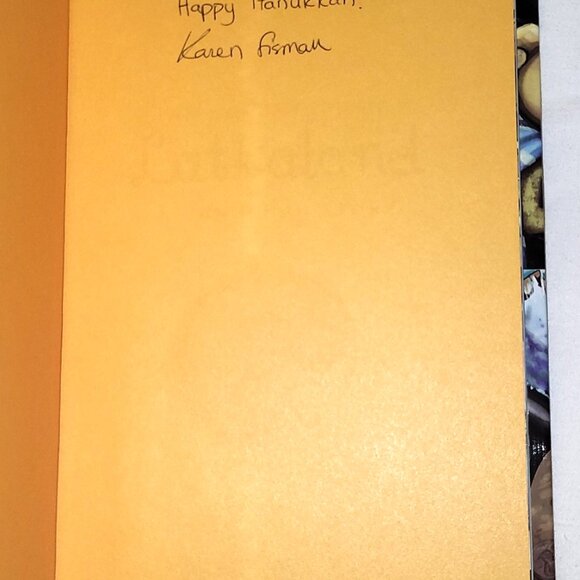 Happy Hanukkah!
Karen Fisman